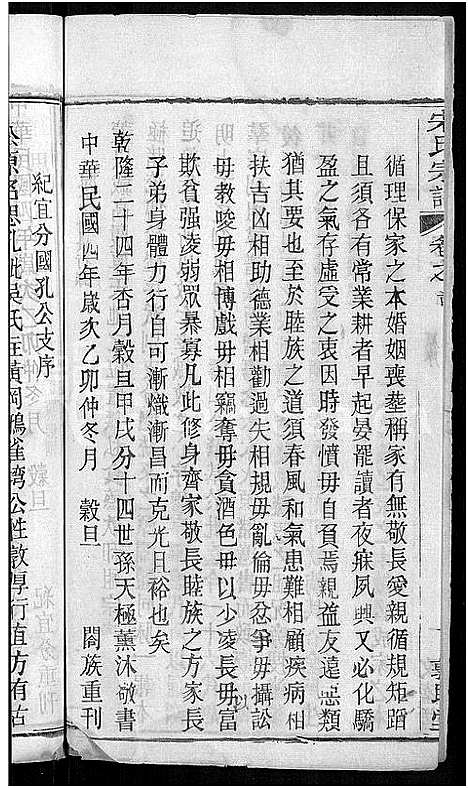 宋氏宗譜
卷之首
循理保家之本婚姻喪塟稱家有無敬長愛親循規矩蹈
且須各有常業耕者早起晏罷讀者夜寐夙興又化驕
盈之氣存虛受之衷因時發憤毋自菲焉親益友遠惡類
猶其要也至於睦族之道須春風和氣患難相顧疾病相
扶吉凶相助德業相勸過失相規毋亂倫毋忿爭毋攝訟
毋教唆毋相博戲毋相竊奪毋貪酒色毋以少凌長毋富
欺貧强凌弱眾暴寡凡此修身齊家敬長睦族之方家長
子弟身體力行自可漸熾漸昌而克光且裕也矣
乾隆二十四年杏月穀旦甲戌分十四世孫天極薰沐敬書
中華民國四年嵗次乙卯仲冬月 穀旦 閤族重刊
紀宜分國孔公支序
氏在黃岡鴉雀湾公性敦厚行直方有古